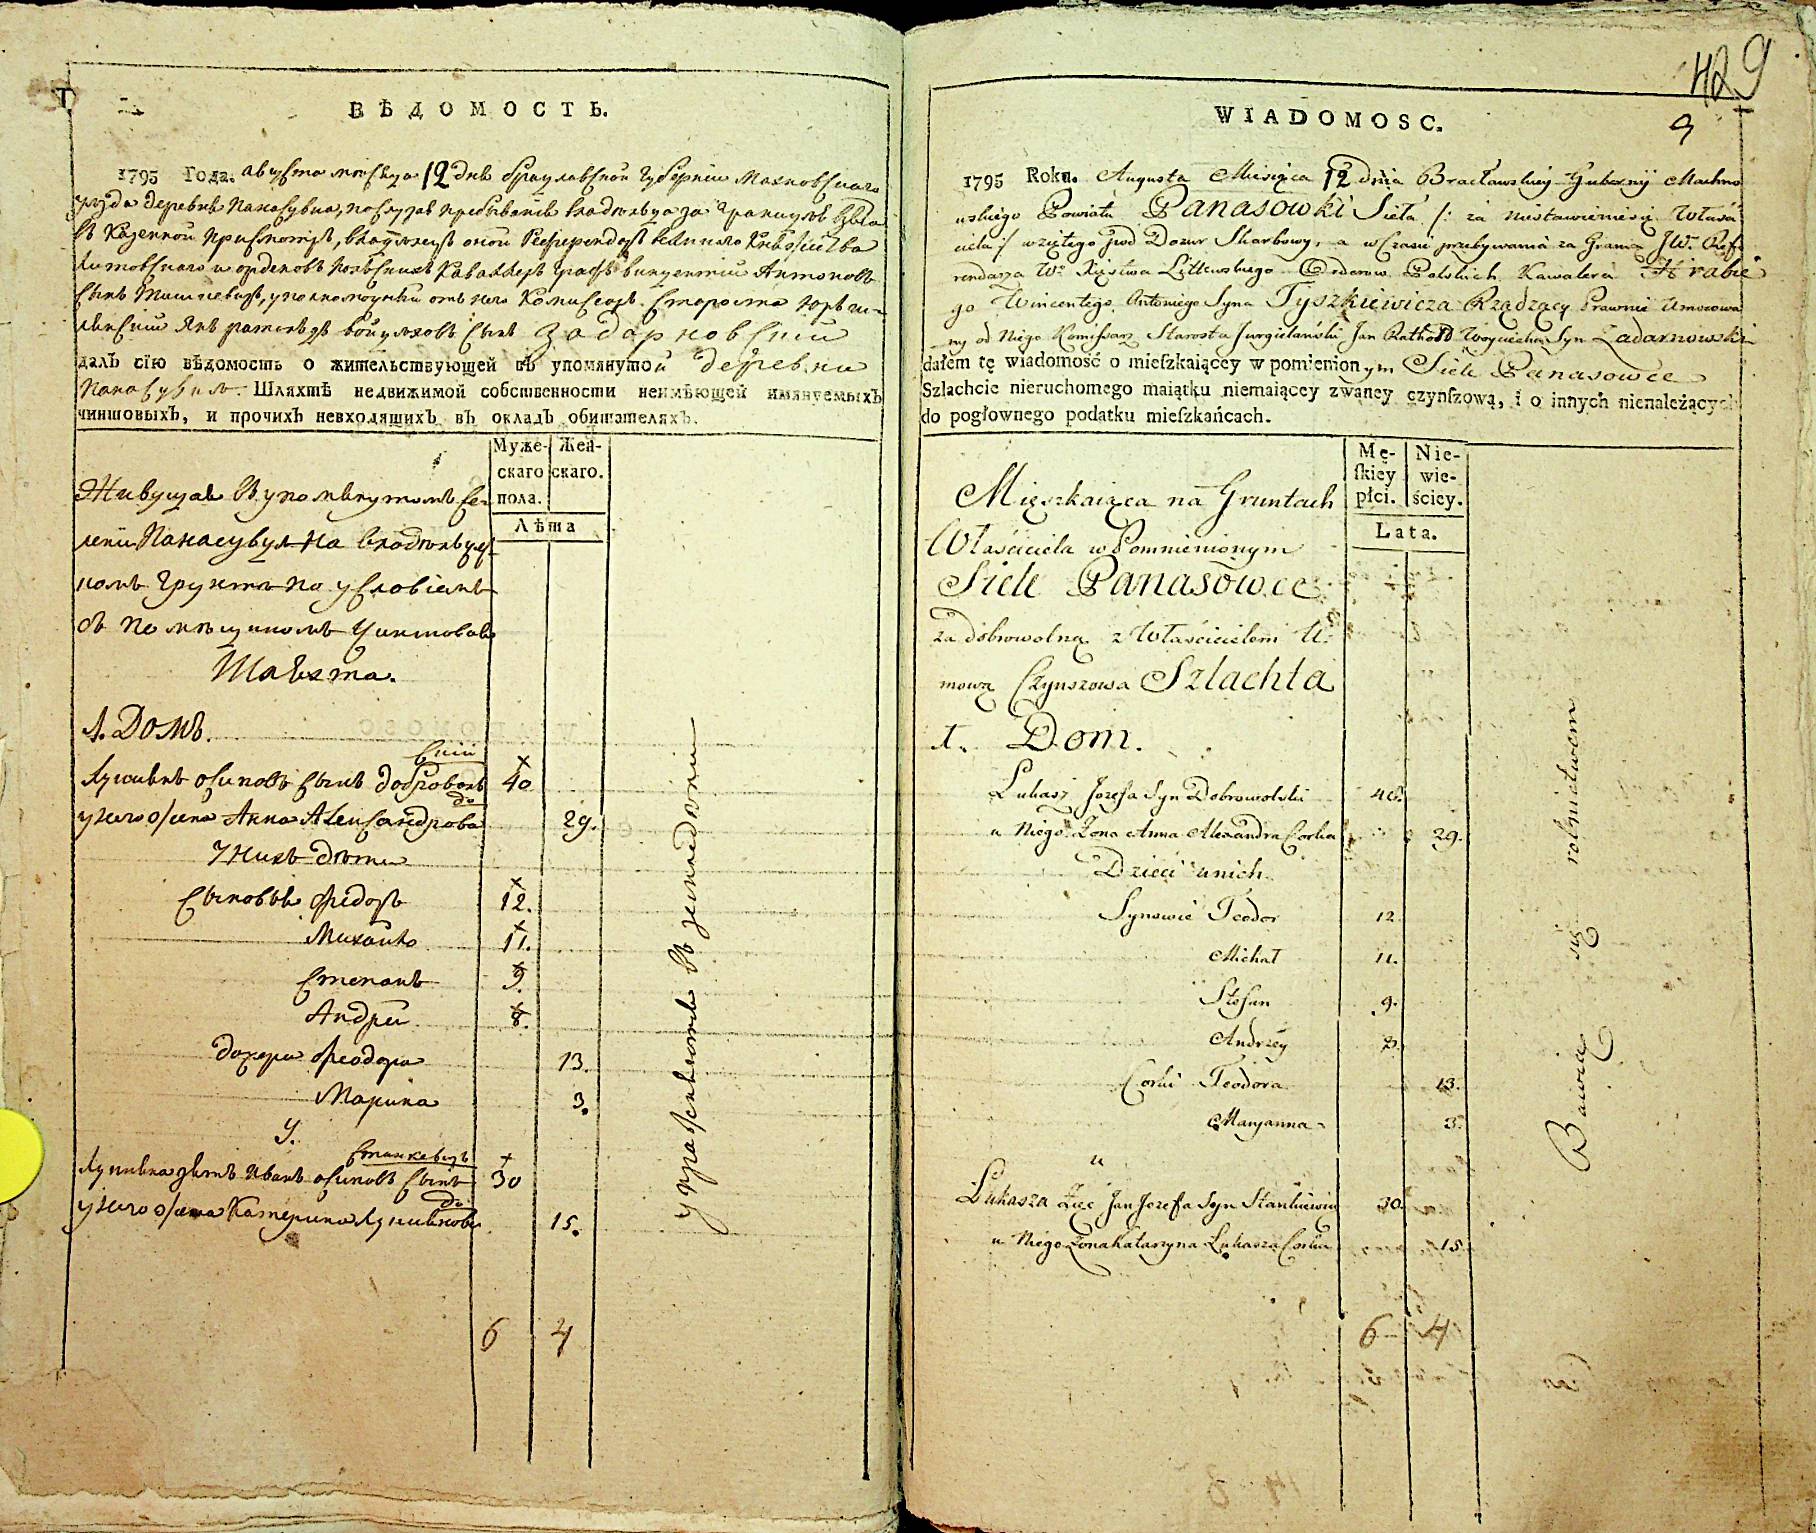 I.
ВѢДОМОСТЬ.
1795 Года. августа месяца 12 дня Брацлавской Губернии Махновскаго
уезда деревни Панасувки, по случаю пребывания владельца за границею взятой
въ казенной присмотръ, владелецъ оной Референдарь великаго Княжества
Литовскаго и орденовъ польскихъ Кавалеръ графъ Викентий Антоновъ
сынъ Тишкевичъ, уполномоченный отъ него Комисаръ Староста
Янъ сынъ Задарновский
далъ сїю вѣдомость о жительствующей въ упомянутой деревни
Панасувки. Шляхтѣ недвижимой собственности неимѣющей имянуемыхъ
чиншовыхъ, и прочихъ невходящихъ въ окладъ обитателяхъ.
Муже-скаго пола.
Жен-скаго.
Лѣта
Живущая въ упомянутомъ се-
лении Панасувки на владельчес-
комъ грунте по условиямъ
съ помещикомъ чиншовая
Шляхта.
1. Домъ.
Лукашъ Осиповъ сынъ Добровольский 40
у него жена Анна Александрова до 29.
у нихъ дети
сыновья Федоръ 12.
Михайло 11.
Степанъ 9.
Андрей 8.
дочери Феодора 13.
Марина 3.
У.
Лукаша зять Иванъ Осиповъ сынъ Станкевичъ 30
у него жена Катерина Лукашова до 15.
упражняются въ земледелии
6 4
429
9
WIADOMOSC.
1795 Roku. Augusta Miesiąca 12 Dnia Bracławskiey Gubernij Machno
wskiego Powiatu Panasowki Sieła /: za niestawieniem się Właści
ciela :/ wziętego pod Dozur Skarbowy, a w Czasie przebywania za Granicą JW. Refe
rendarza W. Xięstwa Littewskiego Orderow Polskich Kawalera Hrabie
go Wincentego Antoniego Syna Tyszkiewicza Rządzący Prawnie Umocowa
ny od Niego Komissarz Starosta Jurgielański Jan Wojciecha Syn Zadarnowski
dałem tę wiadomość o mieſzkaiącey w pomienionym Siele Panasowce
Szlachcie nieruchomego maiątku niemaiącey zwaney czynſzową, i o innych nienależących
do pogłownego podatku mieſzkańcach.
Mę-ſkiey płci.
Nie-wie-ściey.
Lata.
Mięszkaiąca na Gruntach
Właściciela w Pomnienionym
Siele Panasowce
za dobrowolną z Właścicielem U:
mową Czynszowa Szlachta
1. Dom.
Łukasz Jozefa Syn Dobrowolski 40.
u Niego Żona Anna Alexandra Corka 29.
Dzieci u nich
Synowie Teodor 12
Michał 11.
Stefan 9.
Andrzey 8.
Corki Teodora 13.
Maryanna 3.
u
Łukasza Zięć Jan Jozefa Syn Stankiewicz 30.
u Niego Żona Katarzyna Łukasza Corka 15
Bawią się rolnictwem
6 4